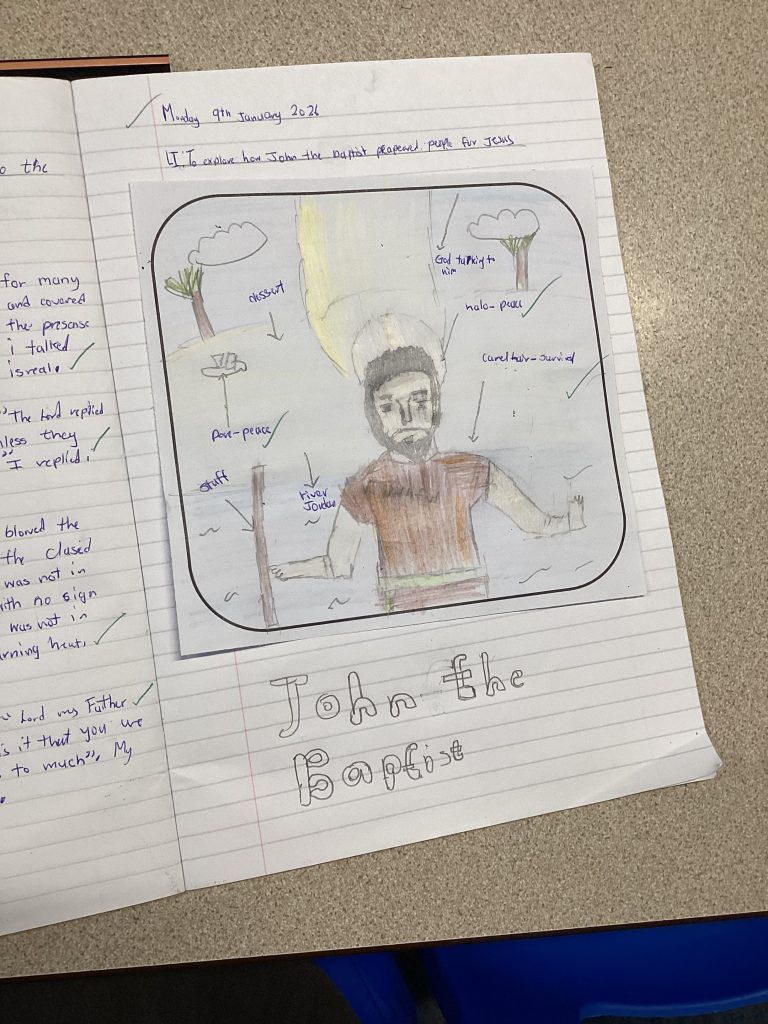 o the
for many
and covered
the presense
i talked
is real.
The Lord replied
nless they
" I replied.
blowed the
the closed
was not in
with no sign
was not in
urning heat.
Lord my Father
is it that you are
to much". My
Monday 9th January 2026
LI: To explore how John the baptist preapeared people for Jesus
God talking to
him
dessert
halo - peace
camel hair - survival
Dove - peace
stuff
river
Jordan
John the
Baptist